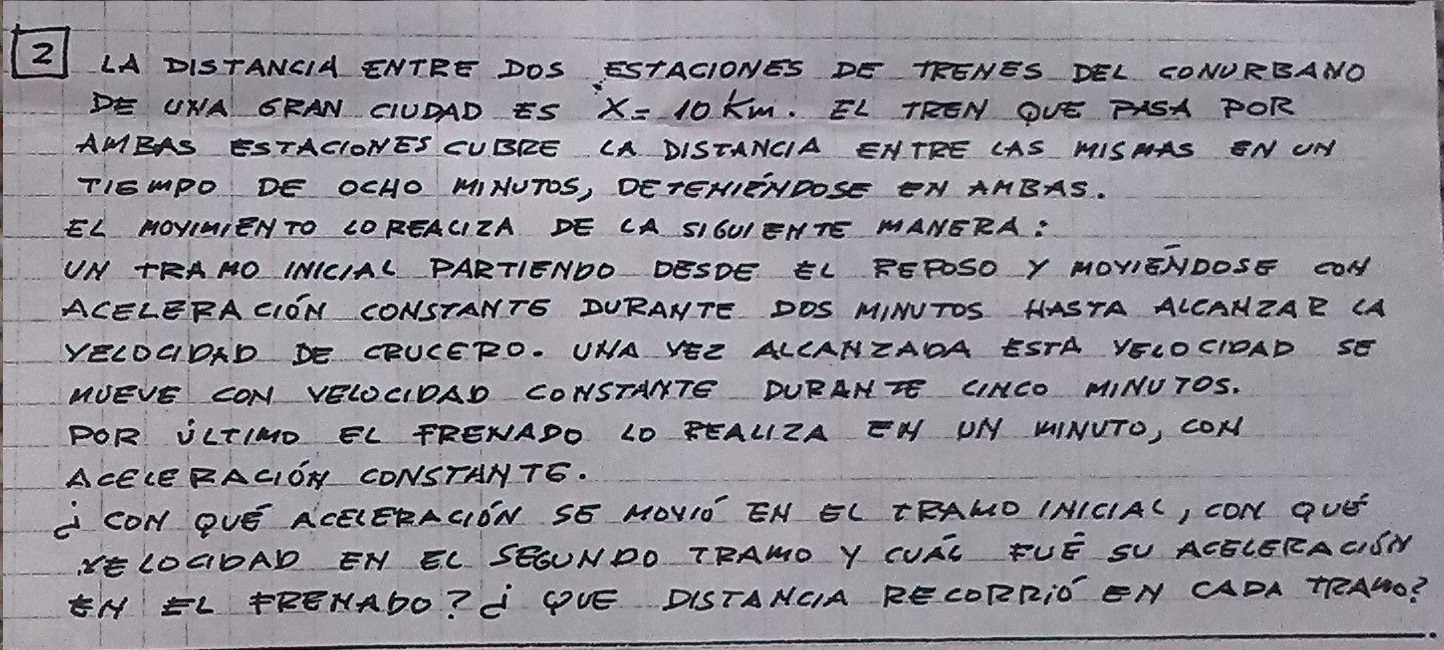 2 LA DISTANCIA ENTRE DOS ESTACIONES DE TRENES DEL CONURBANO
DE UNA GRAN CIUDAD ES X = 10 Km. EL TREN QUE PASA POR
AMBAS ESTACIONES CUBRE LA DISTANCIA ENTRE LAS MISMAS EN UN
TIEMPO DE OCHO MINUTOS, DETENIÉNDOSE EN AMBAS.
EL MOVIMIENTO LO REALIZA DE LA SIGUIENTE MANERA:
UN TRAMO INICIAL PARTIENDO DESDE EL REPOSO Y MOVIÉNDOSE CON
ACELERACIÓN CONSTANTE DURANTE DOS MINUTOS HASTA ALCANZAR LA
VELOCIDAD DE CRUCERO. UNA VEZ ALCANZADA ESTA VELOCIDAD SE
MUEVE CON VELOCIDAD CONSTANTE DURANTE CINCO MINUTOS.
POR ÚLTIMO EL FRENADO LO REALIZA EN UN MINUTO, CON
ACELERACIÓN CONSTANTE.
¿CON QUÉ ACELERACIÓN SE MOVIÓ EN EL TRAMO INICIAL, CON QUÉ
VELOCIDAD EN EL SEGUNDO TRAMO Y CUÁL FUÉ SU ACELERACIÓN
EN EL FRENADO? ¿QUE DISTANCIA RECORRIÓ EN CADA TRAMO?